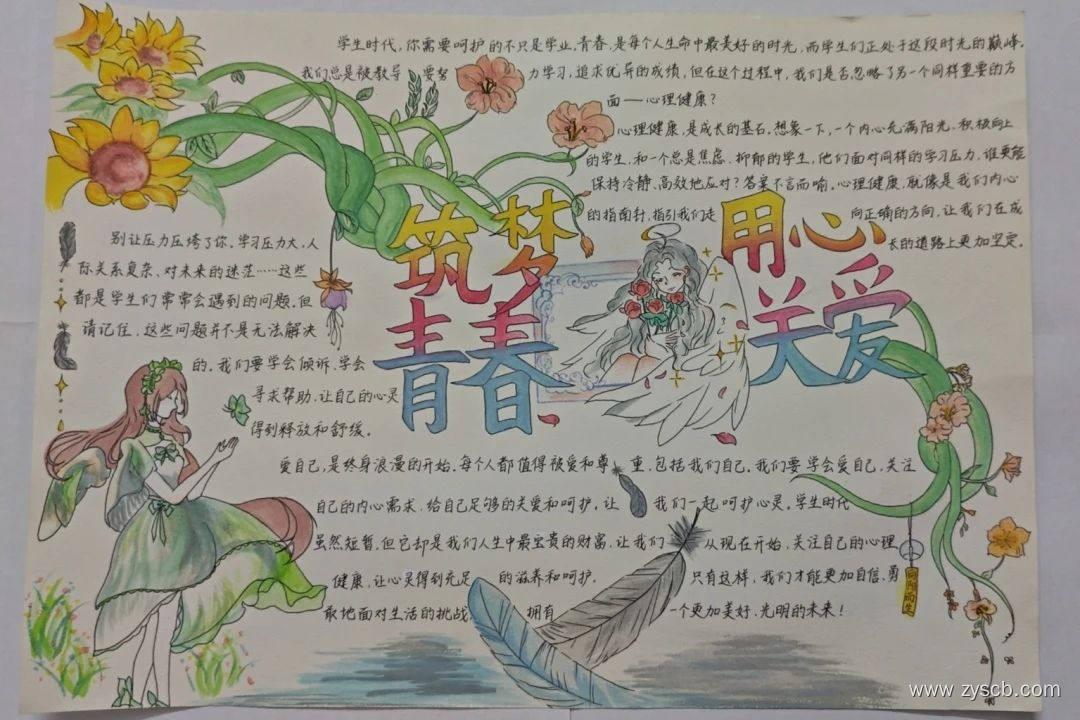 学生时代,你需要呵护的不只是学业,青春,是每个人生命中最美好的时光,而学生们正处于这段时光的巅峰.
我们总是被教导 要努力学习,追求优异的成绩,但在这个过程中,我们是否忽略了另一个同样重要的方
面——心理健康?
心理健康,是成长的基石.想象一下,一个内心充满阳光,积极向上
的学生,和一个总是焦虑.抑郁的学生,他们面对同样的学习压力,谁更能
保持冷静、高效地应对?答案不言而喻.心理健康,就像是我们内心
的指南针,指引我们走 向正确的方向,让我们在成
长的道路上更加坚定。
筑梦
青春
用心
关爱
别让压力压垮了你。学习压力大,人
际关系复杂、对未来的迷茫……这些
都是学生们常常会遇到的问题.但
请记住,这些问题并不是无法解决
的。我们要学会倾诉,学会
寻求帮助,让自己的心灵
得到释放和舒缓。
爱自己,是终身浪漫的开始。每个人都值得被爱和尊重,包括我们自己.我们要学会爱自己,关注
自己的内心需求,给自己足够的关爱和呵护。让我们一起呵护心灵。学生时代
虽然短暂.但它却是我们人生中最宝贵的财富,让我们从现在开始,关注自己的心理
健康,让心灵得到充足的滋养和呵护.只有这样,我们才能更加自信、勇
敢地面对生活的挑战拥有一个更加美好、光明的未来!
向阳而生
www.zyscb.com